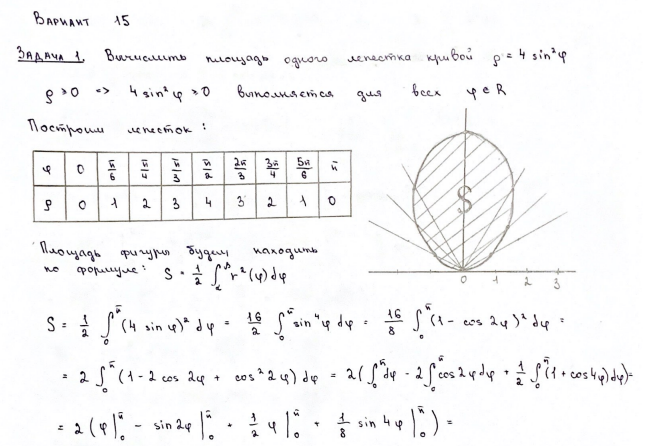 Вариант 15
Задача 1. Вычислить площадь одного лепестка кривой ρ = 4 sin²φ
ρ ≥ 0 => 4 sin²φ ≥ 0 выполняется для всех φ ∈ R
Построим лепесток:
φ 0 π/6 π/4 π/3 π/2 2π/3 3π/4 5π/6 π
ρ 0 1 2 3 4 3 2 1 0
S
0 1 2 3
Площадь фигуры будем находить
по формуле: S = 1/2 ∫_α^β r²(φ)dφ
S = 1/2 ∫_0^π (4 sin φ)² dφ = 16/2 ∫_0^π sin⁴φ dφ = 16/8 ∫_0^π (1 - cos 2φ)² dφ =
= 2 ∫_0^π (1 - 2 cos 2φ + cos² 2φ) dφ = 2(∫_0^π dφ - 2∫_0^π cos 2φ dφ + 1/2 ∫_0^π (1 + cos 4φ) dφ) =
= 2 (φ|_0^π - sin 2φ|_0^π + 1/2 φ|_0^π + 1/8 sin 4φ|_0^π) =